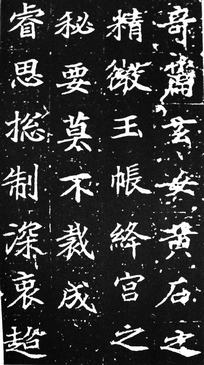 奇䨇玄女黄石之
精微玉帳絳宫之
秘要莫不裁成
睿思揔制深衷超